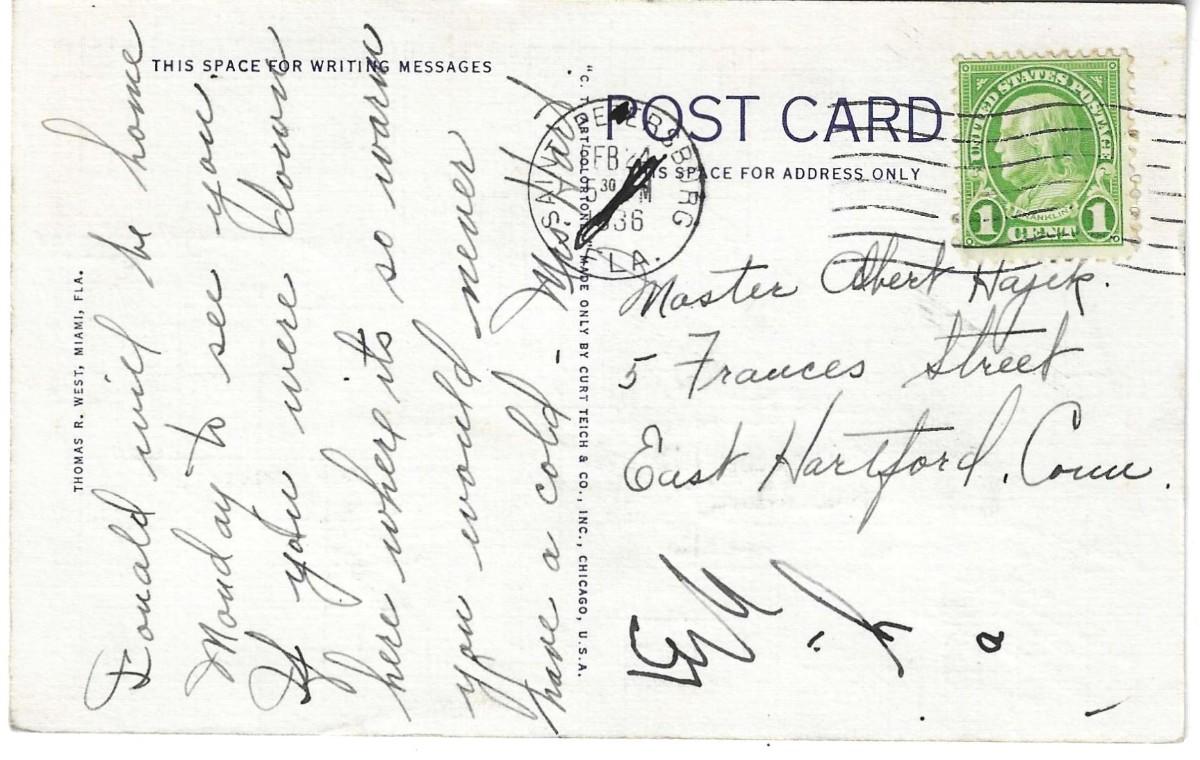 THIS SPACE FOR WRITING MESSAGES
POST CARD
THIS SPACE FOR ADDRESS ONLY
THOMAS R. WEST, MIAMI, FLA.
Donald will be home
Monday to see you.
If you were down
here where its so warm
you would never
have a cold -
Mrs.
"C. T. ART-COLORTONE" MADE ONLY BY CURT TEICH & CO., INC., CHICAGO, U.S.A.
SAINT PETERSBURG
FEB 24
5 30 PM
1936
FLA.
UNITED STATES POSTAGE
FRANKLIN
1 CENT 1
Master Albert Hajek.
5 Frances Street
East Hartford, Conn.